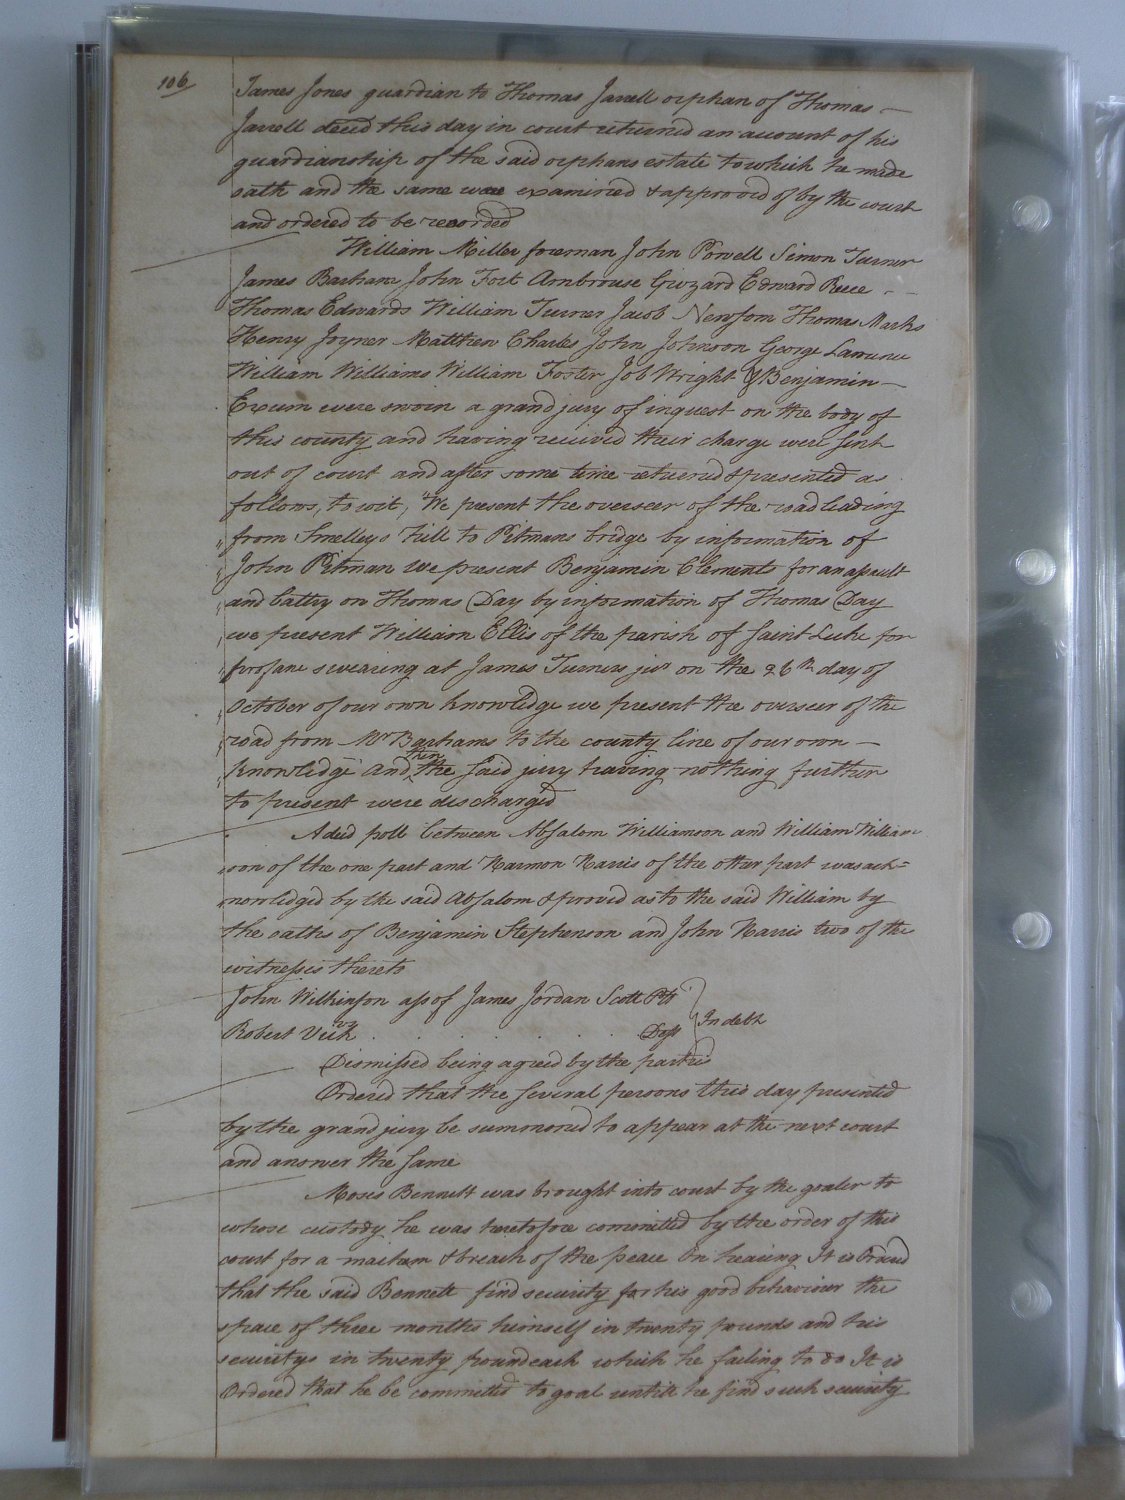 106
James Jones guardian to Thomas Jarrell orphan of Thomas
Jarrell deced this day in court returned an account of his
guardianship of the said orphans estate to which he made
oath and the same were examined & approved of by the court
and ordered to be recorded
William Miller foreman John Powell Simon Turner
James Barham John Fort Ambrouse Grizard Edward Reece
Thomas Edwards William Turner Jacob Newsom Thomas Marks
Henry Joyner Matthew Charles John Johnson George Lawrence
William Williams William Foster Job Wright & Benjamin
Exum were sworn a grand jury of inquest on the body of
this county and having received their charge were sent
out of court and after some time returned & presented as
follows, to wit, We present the overseer of the road leading
from Smelleys Mill to Pitmans bridge by information of
John Pitman we present Benjamin Clements for an assault
and battry on Thomas Day by information of Thomas Day
we present William Ellis of the parish of Saint Luke for
profane swearing at James Turners junr on the 26th day of
October of our own knowledge we present the overseer of the
road from Mr Barhams to the county line of our own
knowledge and then the said jury having nothing further
to present were discharged
A deed poll between Absalom Williamson and William William
son of the one part and Harmon Harris of the other part was ack=
nowledged by the said Absalom & proved as to the said William by
the oaths of Benjamin Stephenson and John Harris two of the
witnesses thereto
John Wilkinson ass of James Jordan Scott Plt
In debt
Robert Deft
Dismissed being agreed by the parties
Ordered that the several persons this day presented
by the grand jury be summoned to appear at the next court
and answer the same
Moses Bennett was brought into court by the goaler to
whose custody he was heretofore committed by the order of this
court for a maihem & breach of the peace On hearing It is Ordered
that the said Bennett find security for his good behaviour the
space of three months himself in twenty pounds and his
securitys in twenty pound each which he failing to do It is
Ordered that he be committed to goal untill he find such security